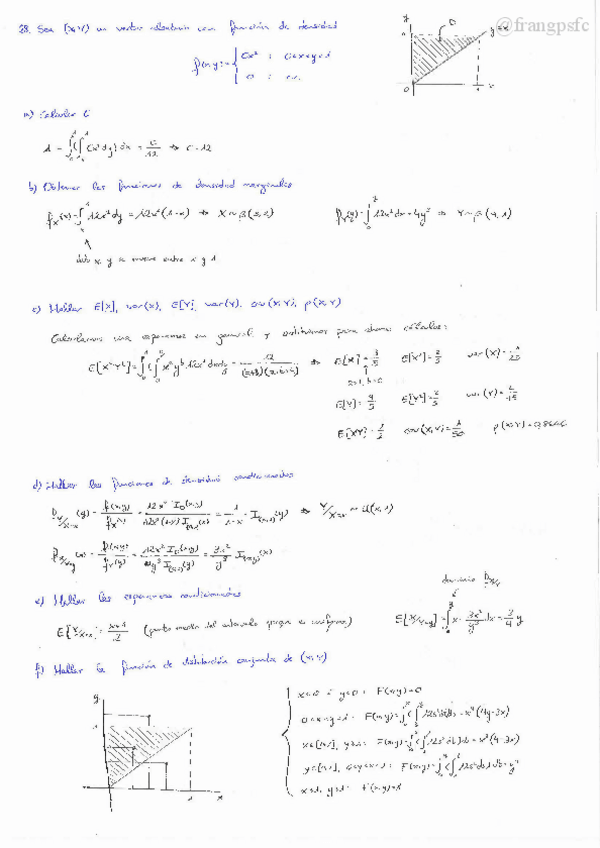 @frangpsfc
28. Sea (X,Y) un vector aleatorio con función de densidad
f(x,y) = { Cx² ; 0<x<y<1
0 ; c.c.
y
D
y=x
0
1
x
a) Calcular C
1 = ∫₀¹(∫ₓ¹ Cx² dy) dx = C/12 ⇒ C=12
b) Obtener las funciones de densidad marginales
f_X(x) = ∫ₓ¹ 12x² dy = 12x²(1-x) ⇒ X ~ β(3,2)
f_Y(y) = ∫₀^y 12x² dx = 4y³ ⇒ Y ~ β(4,1)
dado x, y se mueve entre x y 1
c) Hallar E[X], var(X), E[Y], var(Y), cov(X,Y), ρ(X,Y)
Calculamos una esperanza en general y sustituimos para demás cálculos:
E[XᵃYᵇ] = ∫₀¹(∫₀^y xᵃyᵇ 12x² dx)dy = 12/((a+3)(a+b+4)) ⇒ E[X] = 3/5
E[X²] = 2/5
var(X) = 1/25
a=1, b=0
E[Y] = 4/5
E[Y²] = 2/3
var(Y) =
E[XY] = 1/2
cov(X,Y) = 1/50
ρ(X,Y) =
d) Hallar las funciones de densidad condicionadas
f_{Y/X=x}(y) = f(x,y)/f_X(x) = 12x² I_D(x,y)/12x²(1-x) I_(0,1)(x) = 1/(1-x) · I_(x,1)(y) ⇒ Y/X=x ~ U(x,1)
f_{X/Y=y}(x) = f(x,y)/f_Y(y) = 12x² I_D(x,y)/4y³ I_(0,1)(y) = 3x²/y³ I_(0,y)(x)
e) Hallar las esperanzas condicionadas
E[Y/X=x] = (x+1)/2 (punto medio del intervalo porque es uniforme)
dominio
E[X/Y=y] = ∫₀^y x · 3x²/y³ dx = 3/4 y
f) Hallar la función de distribución conjunta de (X,Y)
y
1
1
x
x≤0 ó y≤0 : F(x,y)=0
0<x<y<1 : F(x,y) = = x³(4y-3x)
x∈[0,1], y≥1 : F(x,y) = = x³(4-3x)
F(x,y) = = y⁴
x≥1, y≥1 : F(x,y)=1